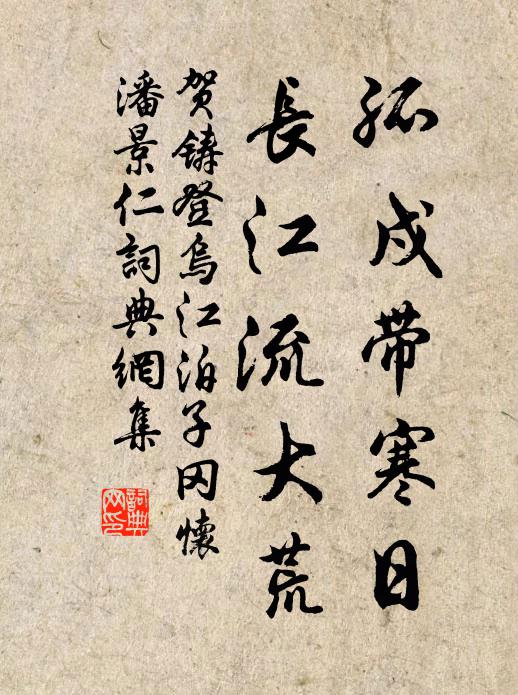 孤戍带寒日
長江流大荒
贺铸登烏江泊子冈懐
潘景仁詞典網集
詞典网印